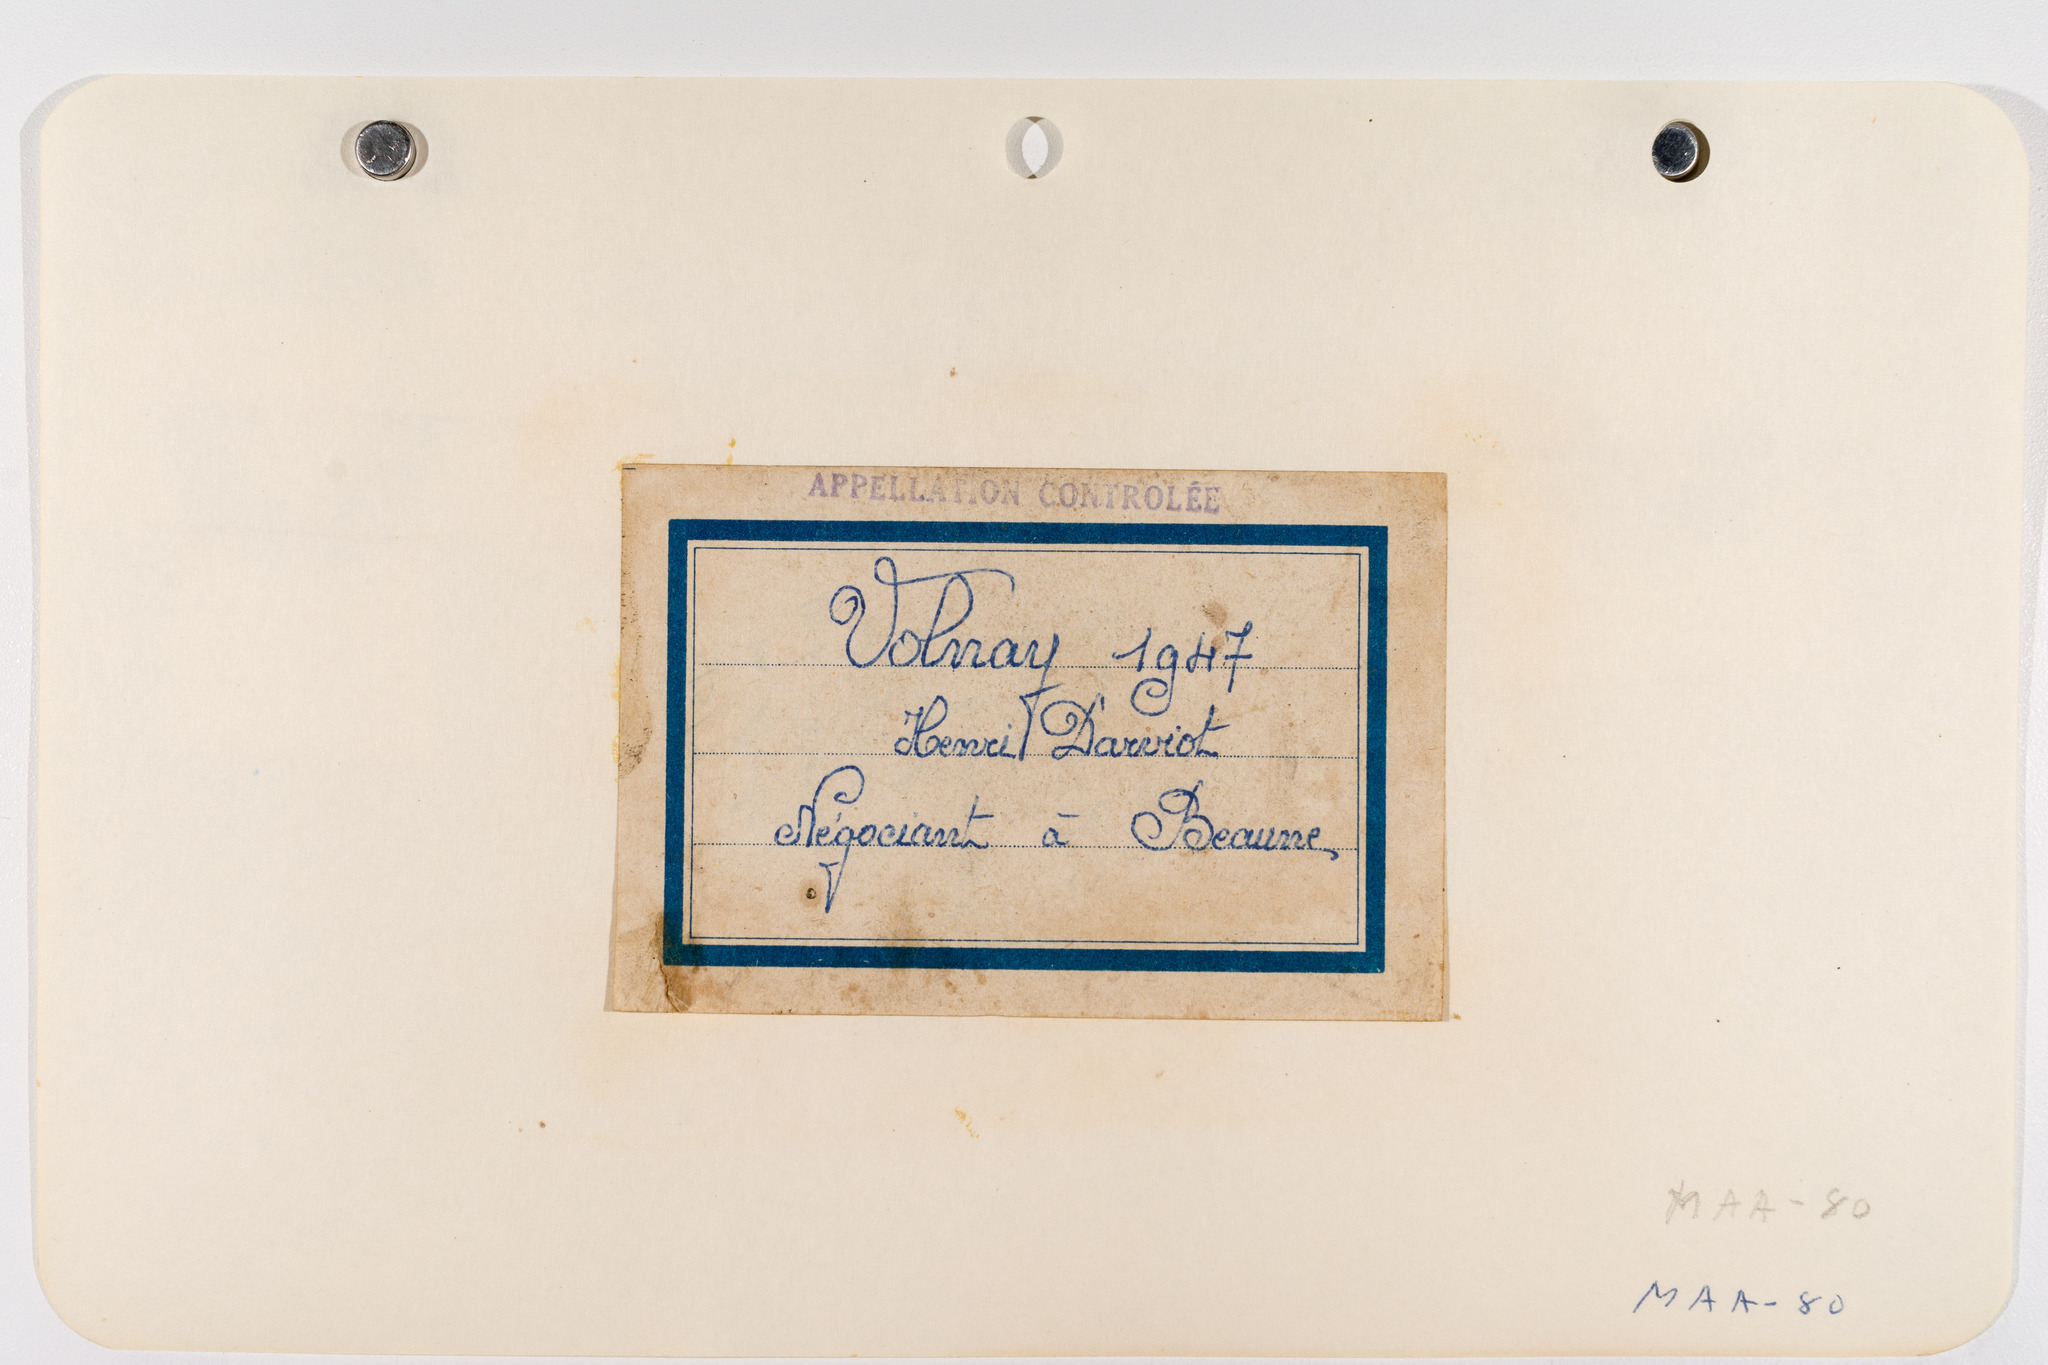 APPELLATION CONTROLÉE
Volnay 1947
Henri Darviot
Négociant à Beaune
MAA-80
MAA-80